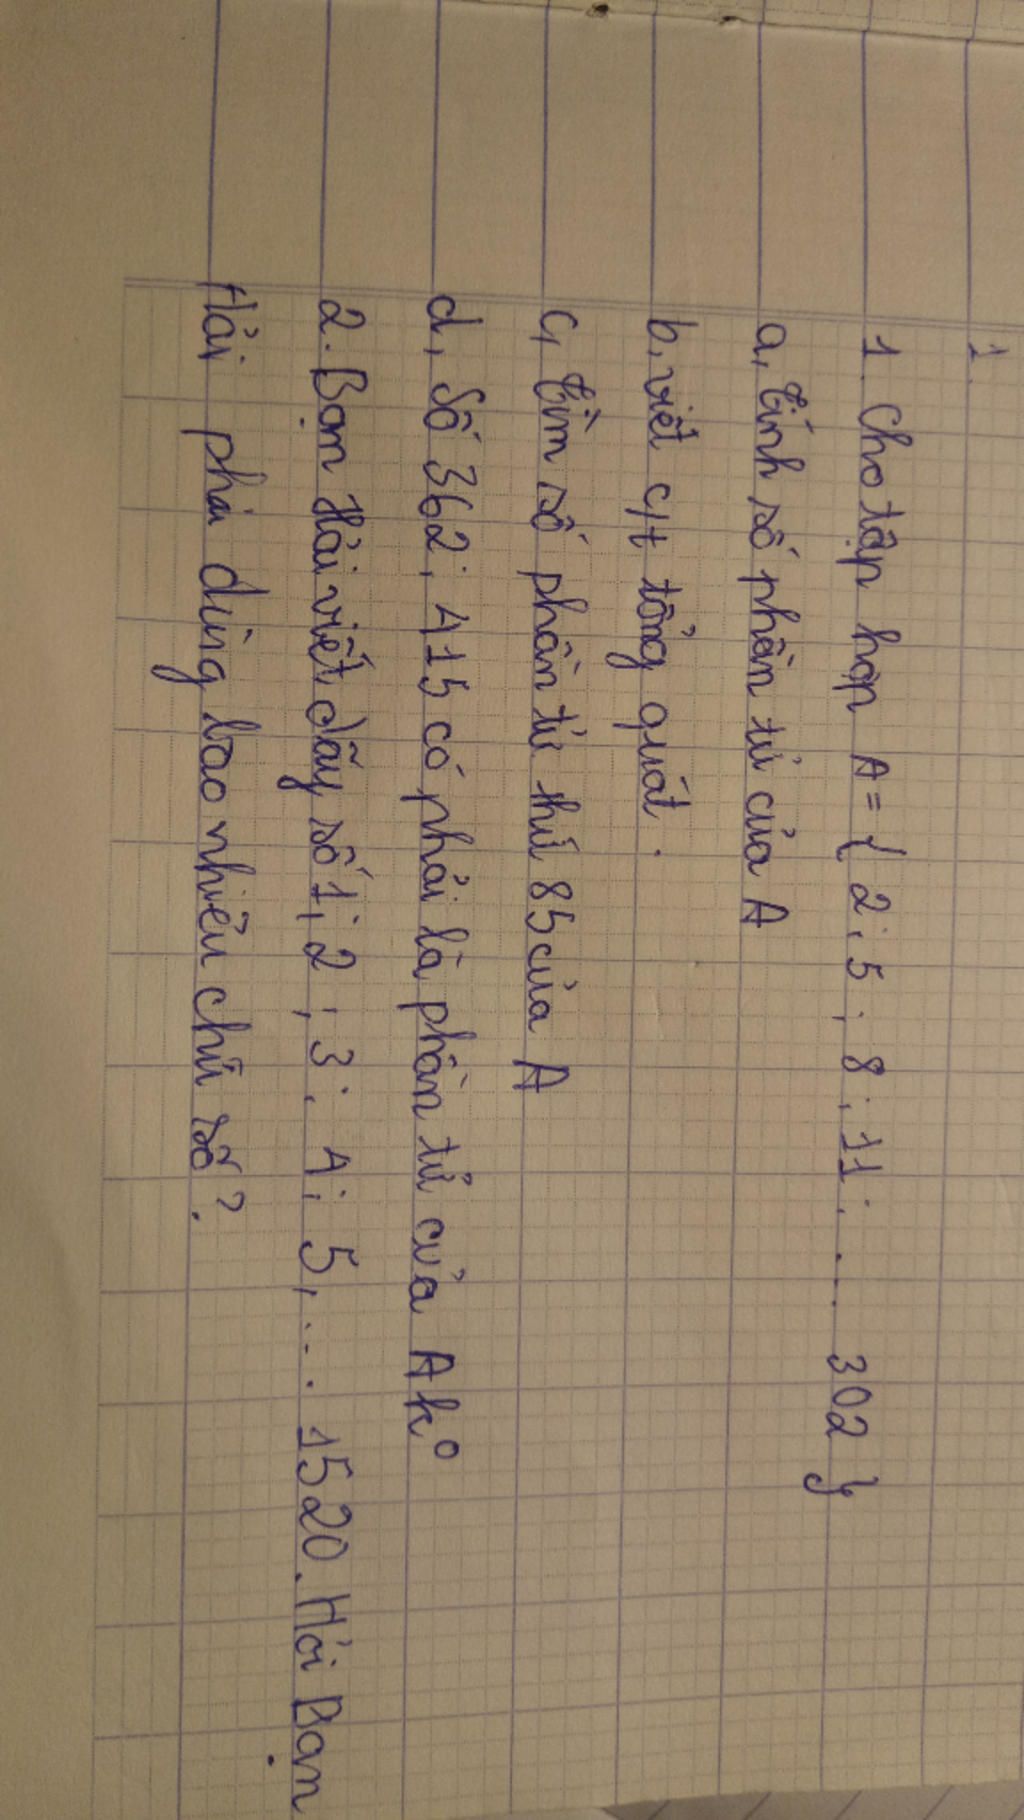 1.
1. Cho tập hợp A = { 2; 5; 8; 11; ... 302 }
a, tính số phần tử của A
b, viết c/t tổng quát.
c, tìm số phần tử thứ 85 của A
d, số 362; 415 có phải là phần tử của A k°
2. Bạn Hải viết dãy số 1; 2; 3; 4; 5, ... 1520. Hỏi Bạn
Hải phải dùng bao nhiêu chữ số?